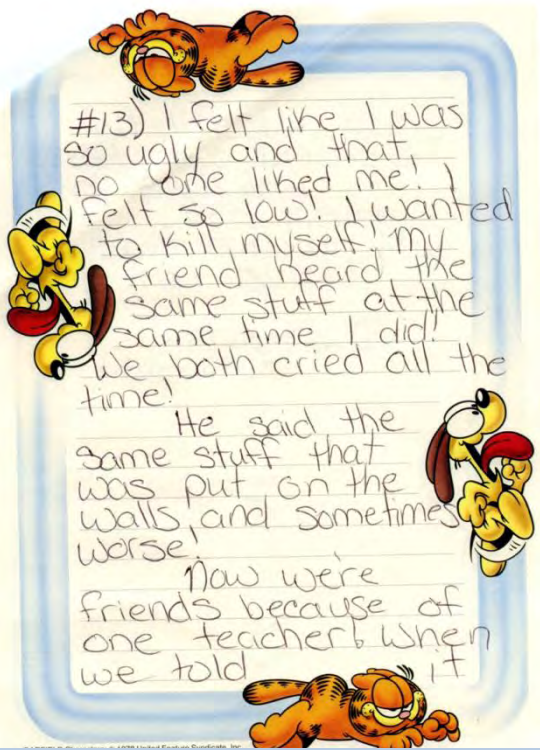 #13) I felt like I was
so ugly and that,
no one liked me! I
felt so low! I wanted
to kill myself! My
friend heard the
same stuff at the
same time I did!
We both cried all the
time!
He said the
same stuff that
was put on the
walls, and sometimes
worse!
Now we're
friends because of
one teacher! When
we told it
1978 United Feature Syndicate, Inc.